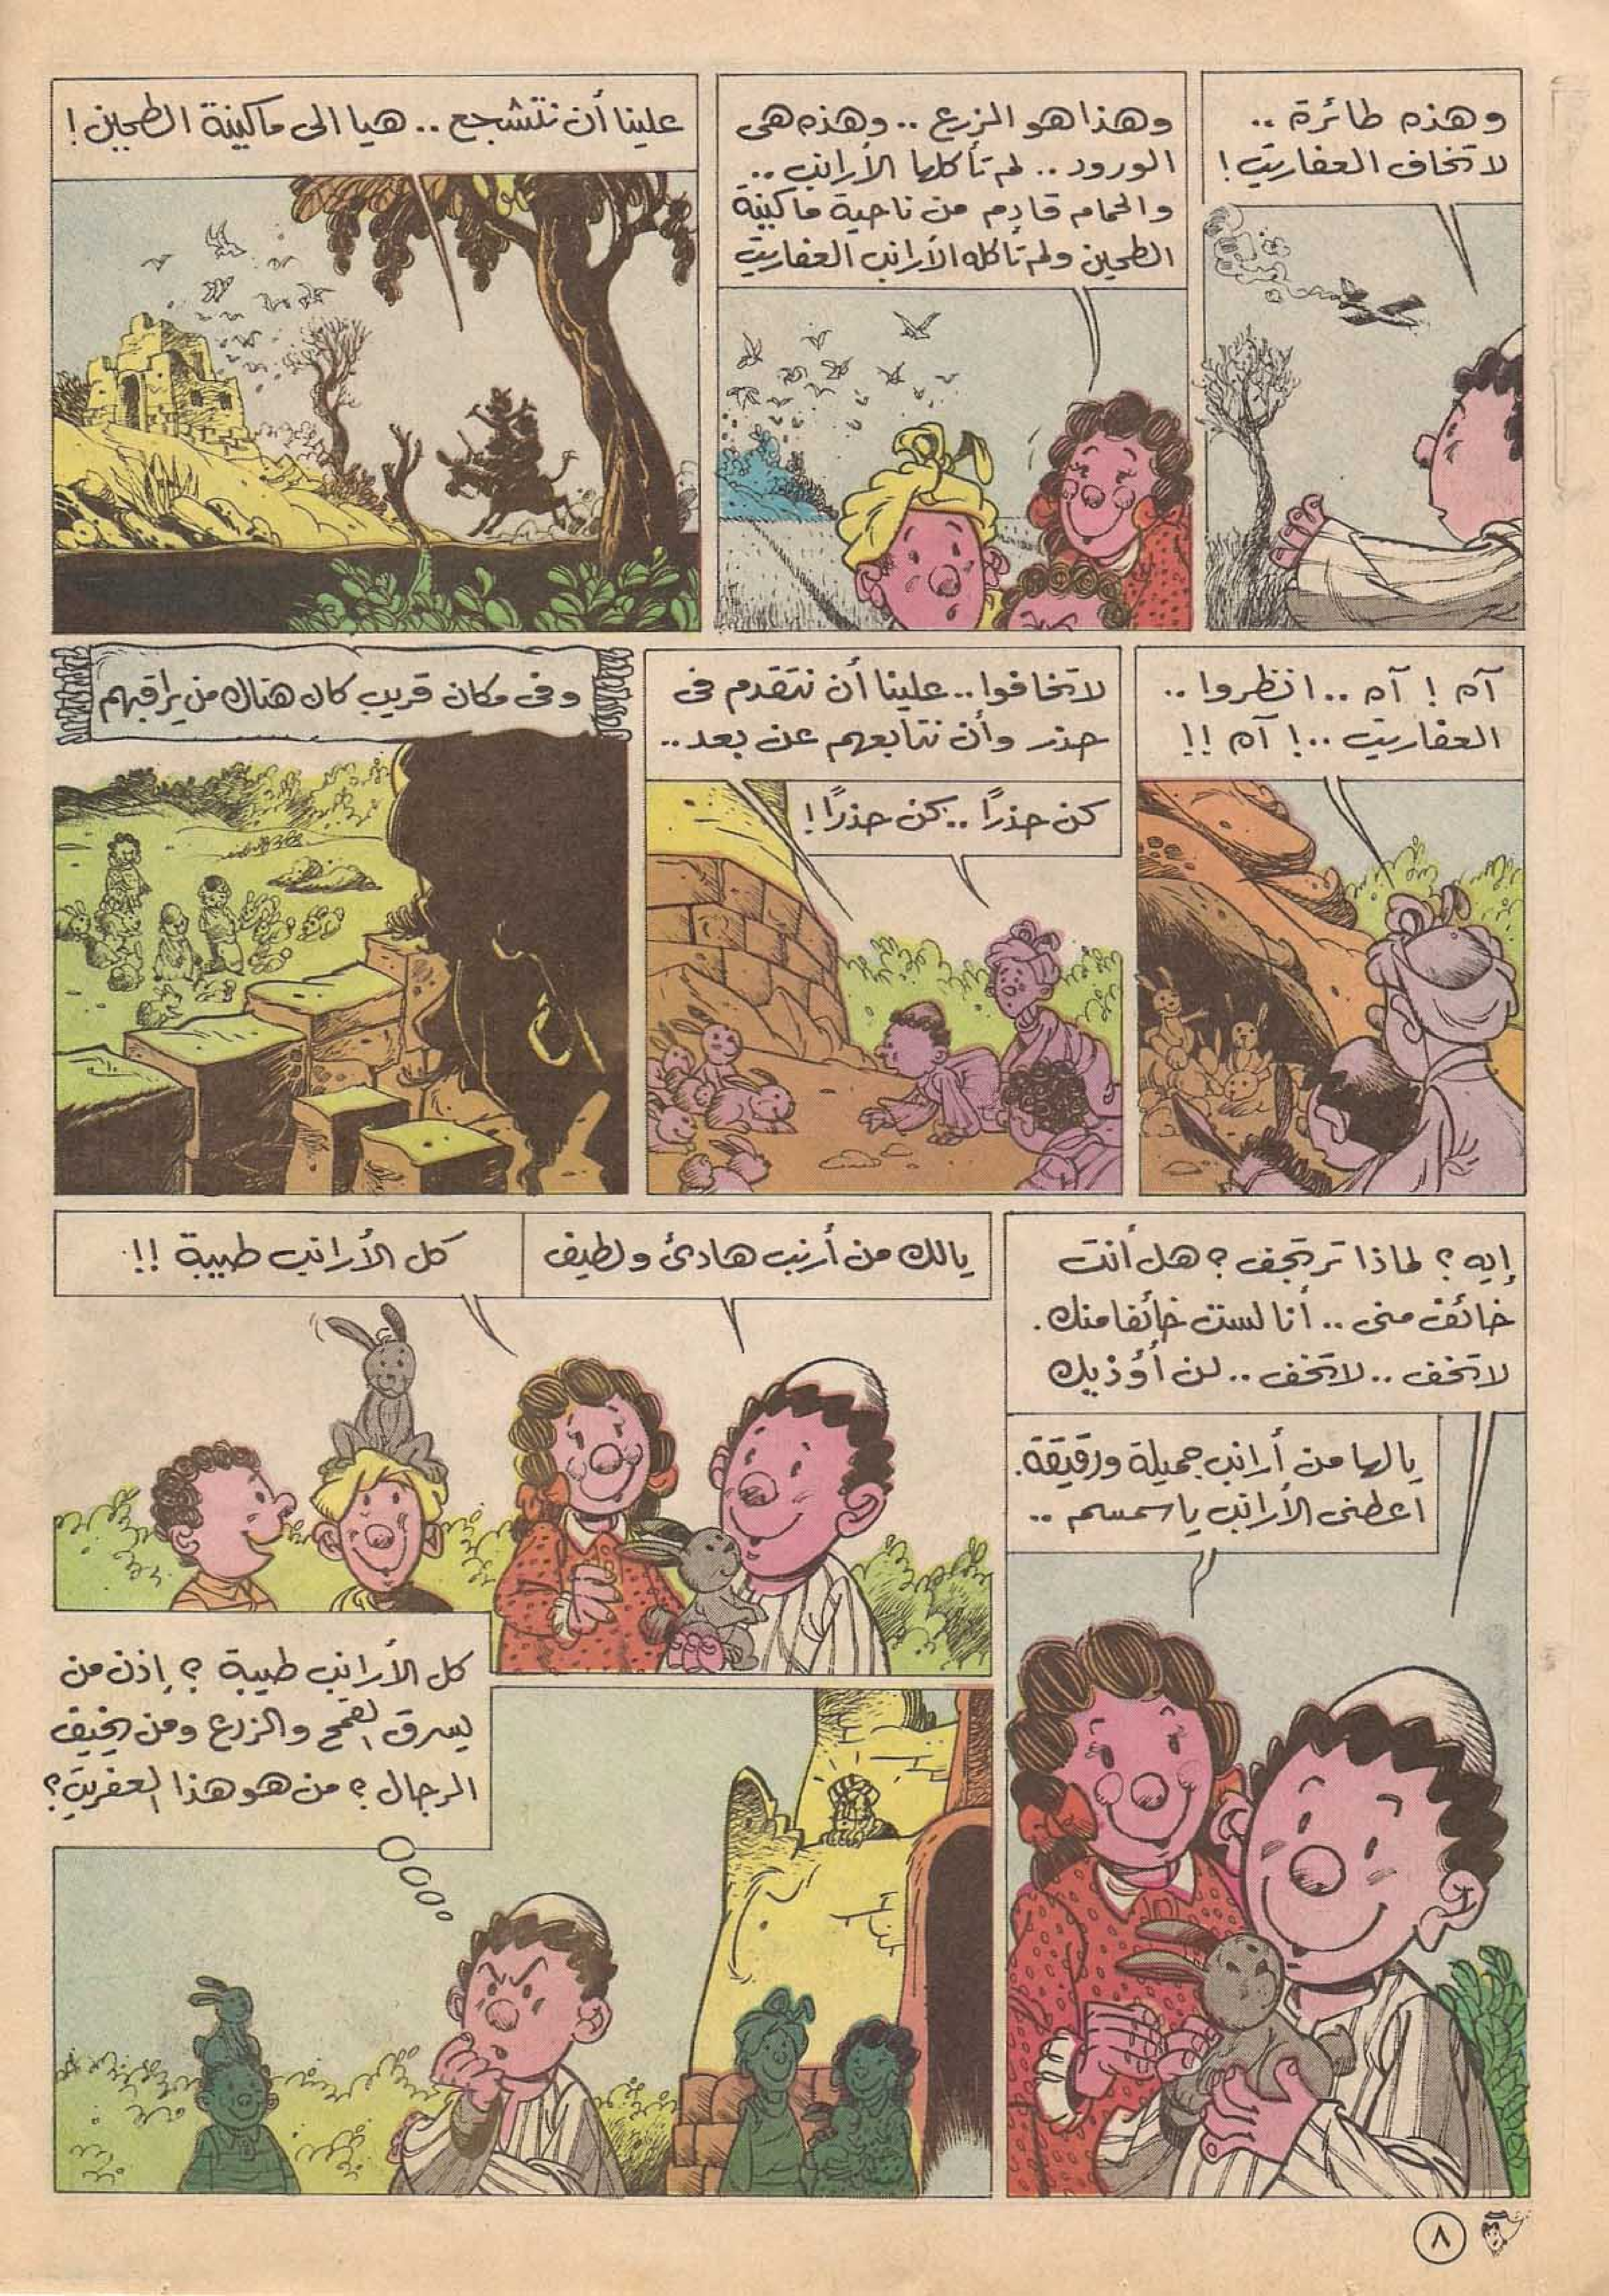 وهذه طائرة ..
لا تخاف العفاريت !
وهذا هو الزرع .. وهذه هى
الورود .. لم تأكلها الأرانب ..
والحمام قادم من ناحية ماكينة
الطحين ولم تأكله الأرانب العفاريت
علينا أن نتشجع .. هيا الى ماكينة الطحين !
آه ! آه .. انظروا ..
العفاريت ..! آه !!
لا تخافوا .. علينا أن نتقدم فى
حذر وأن نتابعهم عن بعد ..
كن حذرًا .. كن حذرًا !
وفى مكان قريب كان هناك من يراقبهم
إيه ؟ لماذا ترتجف ؟ هل أنت
خائف منى .. أنا لست خائفا منك .
لا تخف .. لا تخف .. لن أؤذيك
يالها من أرانب جميلة ورقيقة .
اعطنى الأرانب يا سمسم ..
يالك من أرنب هادئ ولطيف
كل الأرانب طيبة !!
كل الأرانب طيبة ؟ إذن من
يسرق القمح والزرع ومن يخيف
الرجال ؟ من هو هذا العفريت ؟
٨